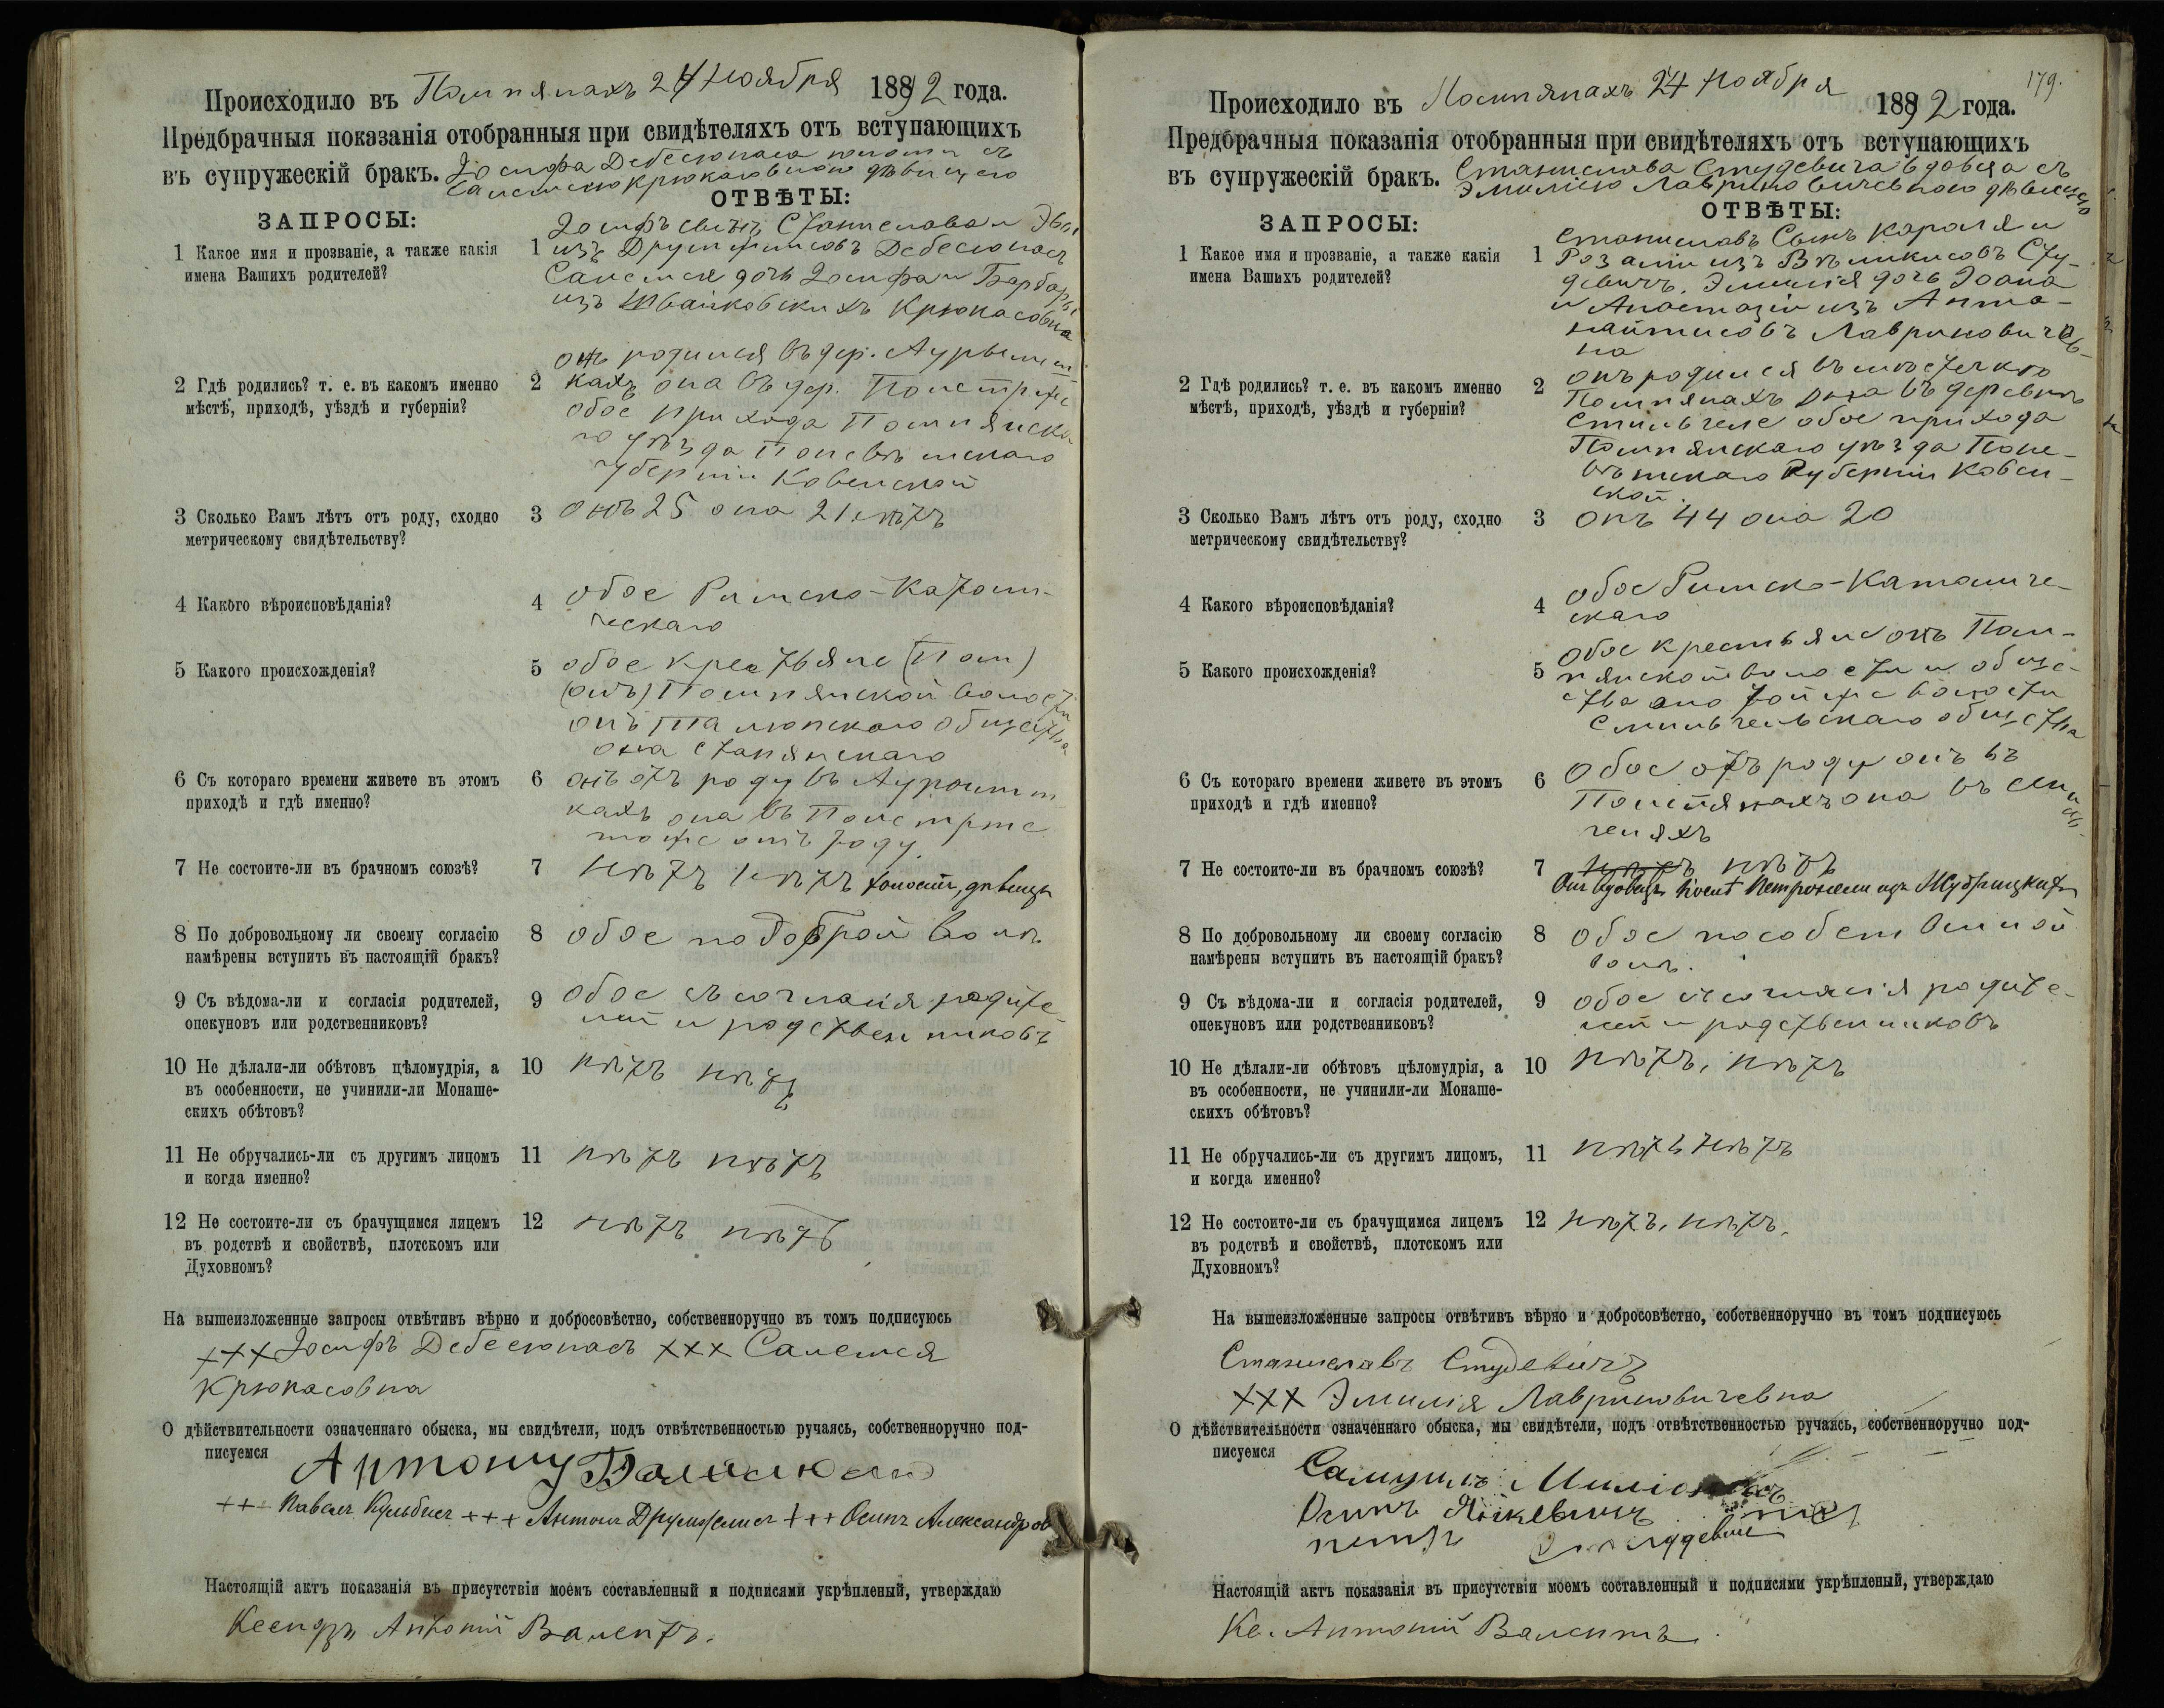 Происходило въ Помпянахъ 24 Ноября 1892 года.
Предбрачныя показанія отобранныя при свидѣтеляхъ отъ вступающихъ
въ супружескій бракъ. Іосифа Дебесюнаса съ
девицею
ЗАПРОСЫ:
ОТВѢТЫ:
1 Какое имя и прозваніе, а также какія
имена Вашихъ родителей?
1 Іосифъ сынъ Станислава и
изъ Дебесюнасъ
дочь Іосифа и Барбары
изъ Крюкасовна
2 Гдѣ родились? т. е. въ какомъ именно
мѣстѣ, приходѣ, уѣздѣ и губерніи?
2 онъ родился въ дер.
кахъ она въ дер.
обое прихода Помпянска
го уѣзда Поневѣжскаго
губерніи Ковенской
3 Сколько Вамъ лѣтъ отъ роду, сходно
метрическому свидѣтельству?
3 онъ 25 она 21 лѣтъ
4 Какого вѣроисповѣданія?
4 обое Римско-Католи-
ческаго
5 Какого происхожденія?
5 обое крестьяне
(онъ) Помпянской волости
онъ общества
она
6 Съ котораго времени живете въ этомъ
приходѣ и гдѣ именно?
6 онъ отъ роду въ
кахъ она въ
тоже отъ роду
7 Не состоите-ли въ брачномъ союзѣ?
7 нѣтъ нѣтъ холостъ, дѣвица
8 По добровольному ли своему согласію
намѣрены вступить въ настоящій бракъ?
8 обое по доброй волѣ
9 Съ вѣдома-ли и согласія родителей,
опекуновъ или родственниковъ?
9 обое съ согласія родите
лей и родственниковъ
10 Не дѣлали-ли обѣтовъ цѣломудрія, а
въ особенности, не учинили-ли Монаше-
скихъ обѣтовъ?
10 нѣтъ нѣтъ
11 Не обручались-ли съ другимъ лицомъ
и когда именно?
11 нѣтъ нѣтъ
12 Не состоите-ли съ брачущимся лицемъ
въ родствѣ и свойствѣ, плотскомъ или
Духовномъ?
12 нѣтъ нѣтъ
На вышеизложенные запросы отвѣтивъ вѣрно и добросовѣстно, собственноручно въ томъ подписуюсь
+++ Іосифъ Дебесюнасъ +++
Крюкасовна
О дѣйствительности означеннаго обыска, мы свидѣтели, подъ отвѣтственностью ручаясь, собственноручно под-
писуемся
+++ Павелъ +++ Антонъ +++ Осипъ Александров
Настоящій актъ показанія въ присутствіи моемъ составленный и подписями укрѣпленый, утверждаю
Ксендзъ Антоній Валентъ.
179.
Происходило въ Помпянахъ 24 Ноября 1892 года.
Предбрачныя показанія отобранныя при свидѣтеляхъ отъ вступающихъ
въ супружескій бракъ. Станислава Студевича вдовца съ
Эмиліею Лавриновичевною дѣвицею
ЗАПРОСЫ:
ОТВѢТЫ:
1 Какое имя и прозваніе, а также какія
имена Вашихъ родителей?
1 Станиславъ Сынъ Кароля и
Розаліи изъ Сту-
девичъ. Эмилія дочь Іоана
и Анастазіи изъ Анта-
Лавринович
на
2 Гдѣ родились? т. е. въ какомъ именно
мѣстѣ, приходѣ, уѣздѣ и губерніи?
2 онъ родился въ мѣстечкѣ
Помпянахъ она въ деревнѣ
обое прихода
Помпянскаго уѣзда Поне-
вѣжскаго Губерніи Ковен-
ской.
3 Сколько Вамъ лѣтъ отъ роду, сходно
метрическому свидѣтельству?
3 онъ 44 она 20
4 Какого вѣроисповѣданія?
4 обое Римско-Католиче-
скаго
5 Какого происхожденія?
5 обое крестьяне онъ Пом-
пянской волости и обще-
ства она той же волости
общества
6 Съ котораго времени живете въ этомъ
приходѣ и гдѣ именно?
6 Обое отъ роду онъ въ
Помпянахъ она въ
геляхъ
7 Не состоите-ли въ брачномъ союзѣ?
7 нѣтъ нѣтъ
Онъ вдовецъ послѣ Петронели изъ
8 По добровольному ли своему согласію
намѣрены вступить въ настоящій бракъ?
8 обое по собственной
волѣ.
9 Съ вѣдома-ли и согласія родителей,
опекуновъ или родственниковъ?
9 обое съ согласія родите-
лей и родственниковъ
10 Не дѣлали-ли обѣтовъ цѣломудрія, а
въ особенности, не учинили-ли Монаше-
скихъ обѣтовъ?
10 нѣтъ, нѣтъ
11 Не обручались-ли съ другимъ лицомъ,
и когда именно?
11 нѣтъ нѣтъ
12 Не состоите-ли съ брачущимся лицемъ
въ родствѣ и свойствѣ, плотскомъ или
Духовномъ?
12 нѣтъ, нѣтъ.
На вышеизложенные запросы отвѣтивъ вѣрно и добросовѣстно, собственноручно въ томъ подписуюсь
Станиславъ Студевичъ
+++ Эмилія Лавриновичевна
О дѣйствительности означеннаго обыска, мы свидѣтели, подъ отвѣтственностью ручаясь, собственноручно под-
писуемся
Осипъ
Настоящій актъ показанія въ присутствіи моемъ составленный и подписями укрѣпленый, утверждаю
Кс. Антоній Валентъ.